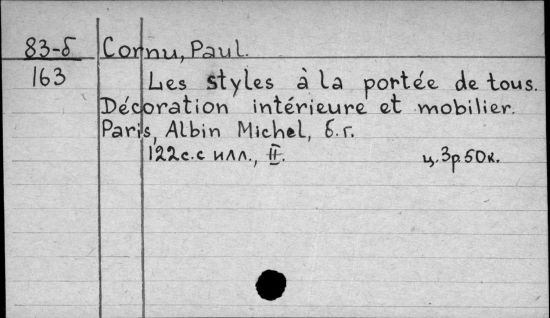 83-б Cornu, Paul.
163 Les styles à la portée de tous.
Décoration intérieure et mobilier.
Paris, Albin Michel, б.г.
122с. с илл., II. ц. 3р 50к.